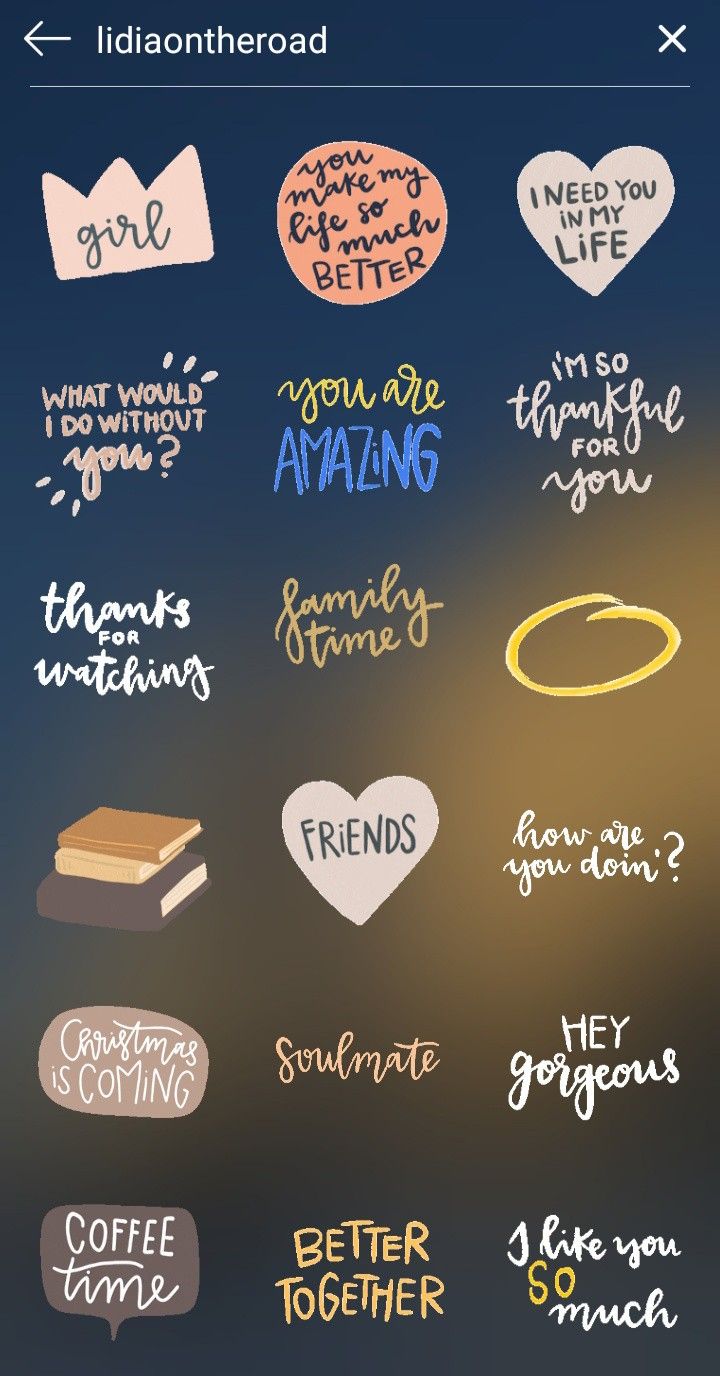 lidiaontheroad
girl
you
make my
life so
much
BETTER
I NEED YOU
IN MY
LiFE
WHAT WOULD
I DO WITHOUT
you?
you are
AMAZiNG
I'M SO
thankful
FOR
you
thanks
FOR
watching
family
time
FRiENDS
how are
you doin'?
Christmas
iS COMING
Soulmate
HEY
gorgeous
COFFEE
time
BETTER
TOGETHER
I like you
SO
much